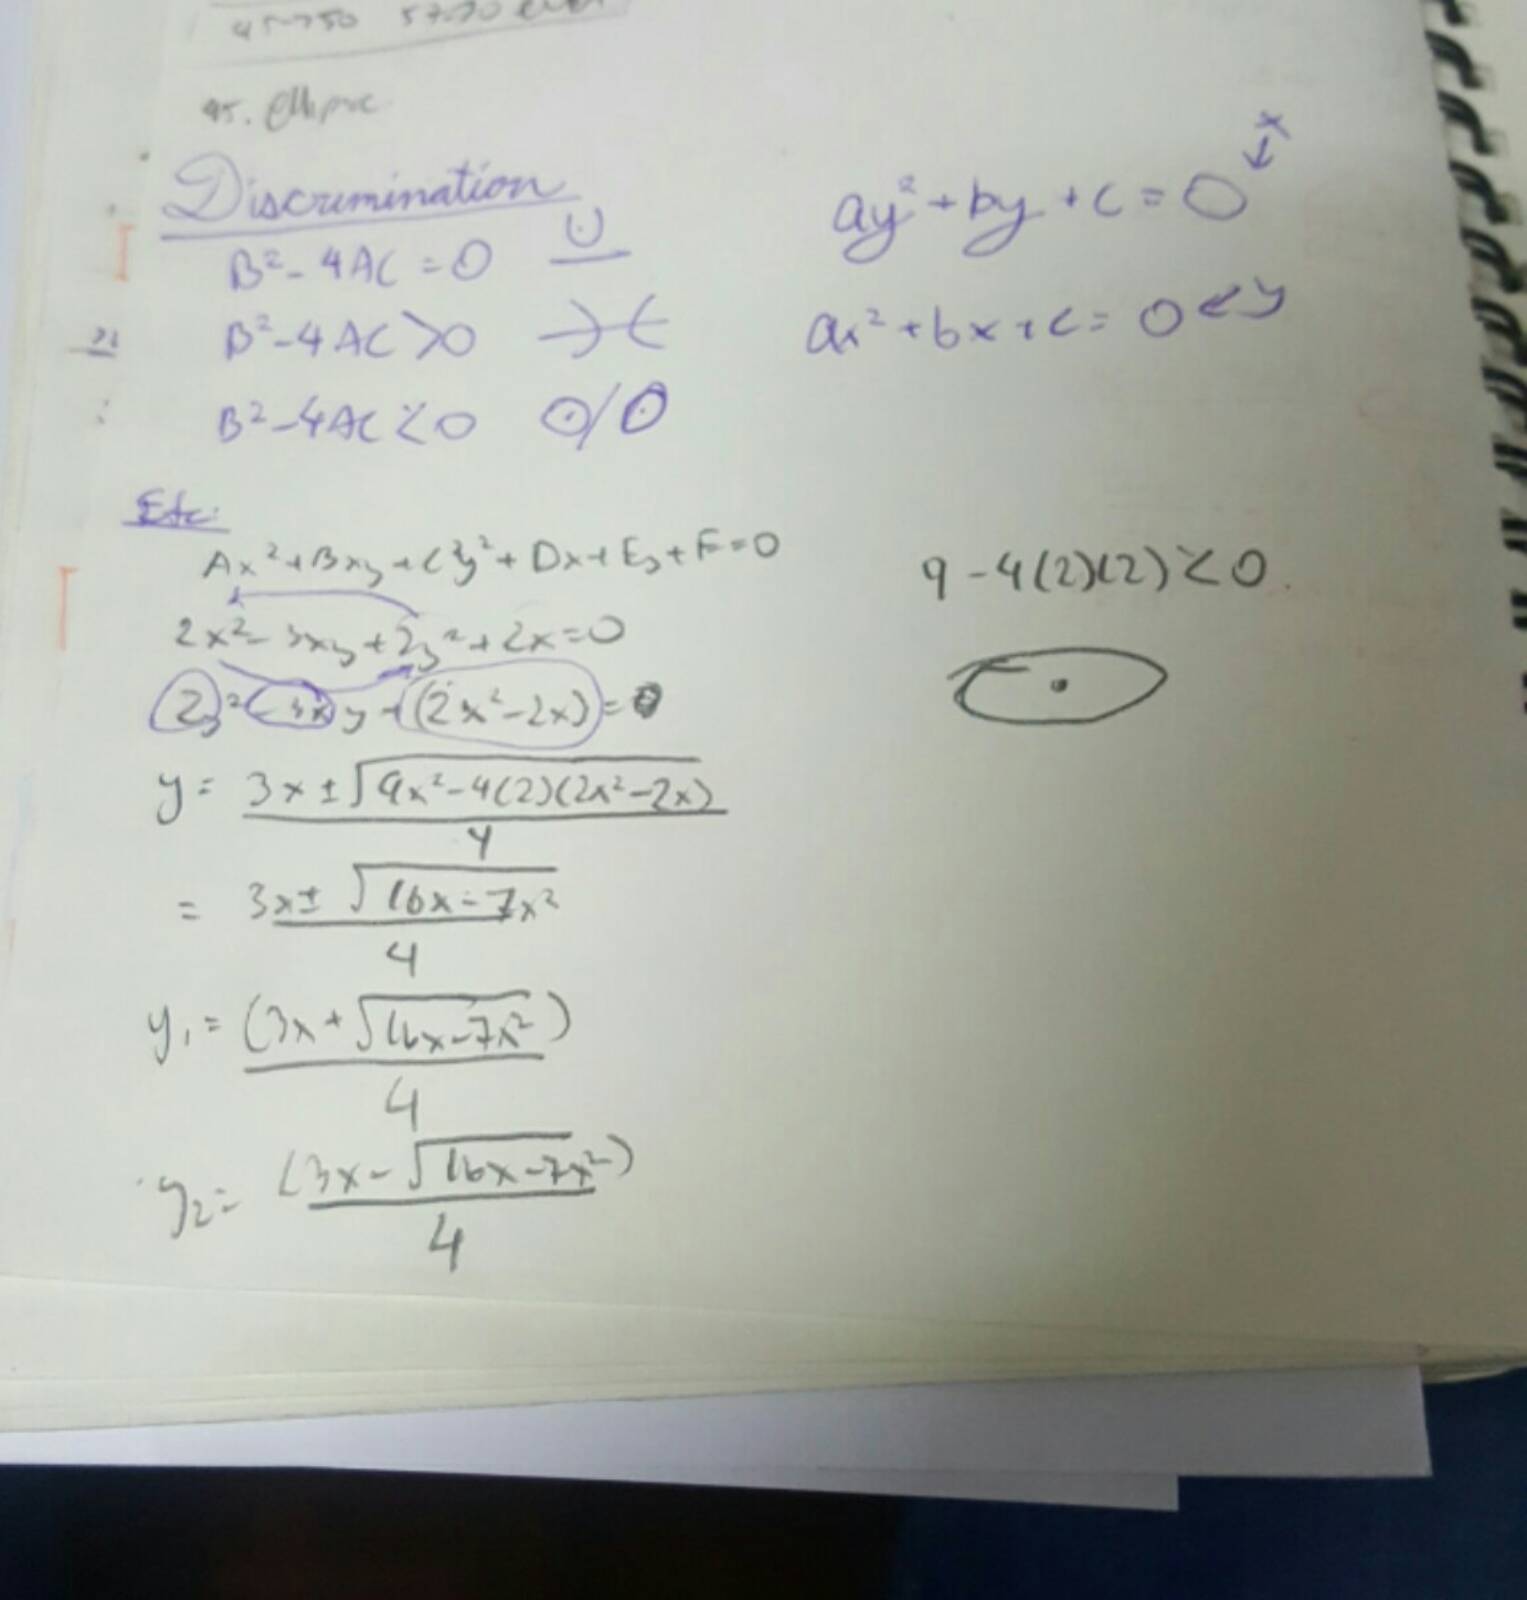 45. Ellipse
Discrimination
B² - 4AC = 0
B² - 4AC > 0
B² - 4AC < 0
ay² + by + c = 0 ← x
ax² + bx + c = 0 ← y
Etc:
Ax² + Bxy + Cy² + Dx + Ey + F = 0
2x² - 3xy + 2y² + 2x = 0
2y² - 3xy + (2x² - 2x) = 0
y = 3x ± √9x² - 4(2)(2x² - 2x)
4
= 3x ± √16x - 7x²
4
y₁ = (3x + √16x - 7x²)
4
y₂ = (3x - √16x - 7x²)
4
9 - 4(2)(2) < 0